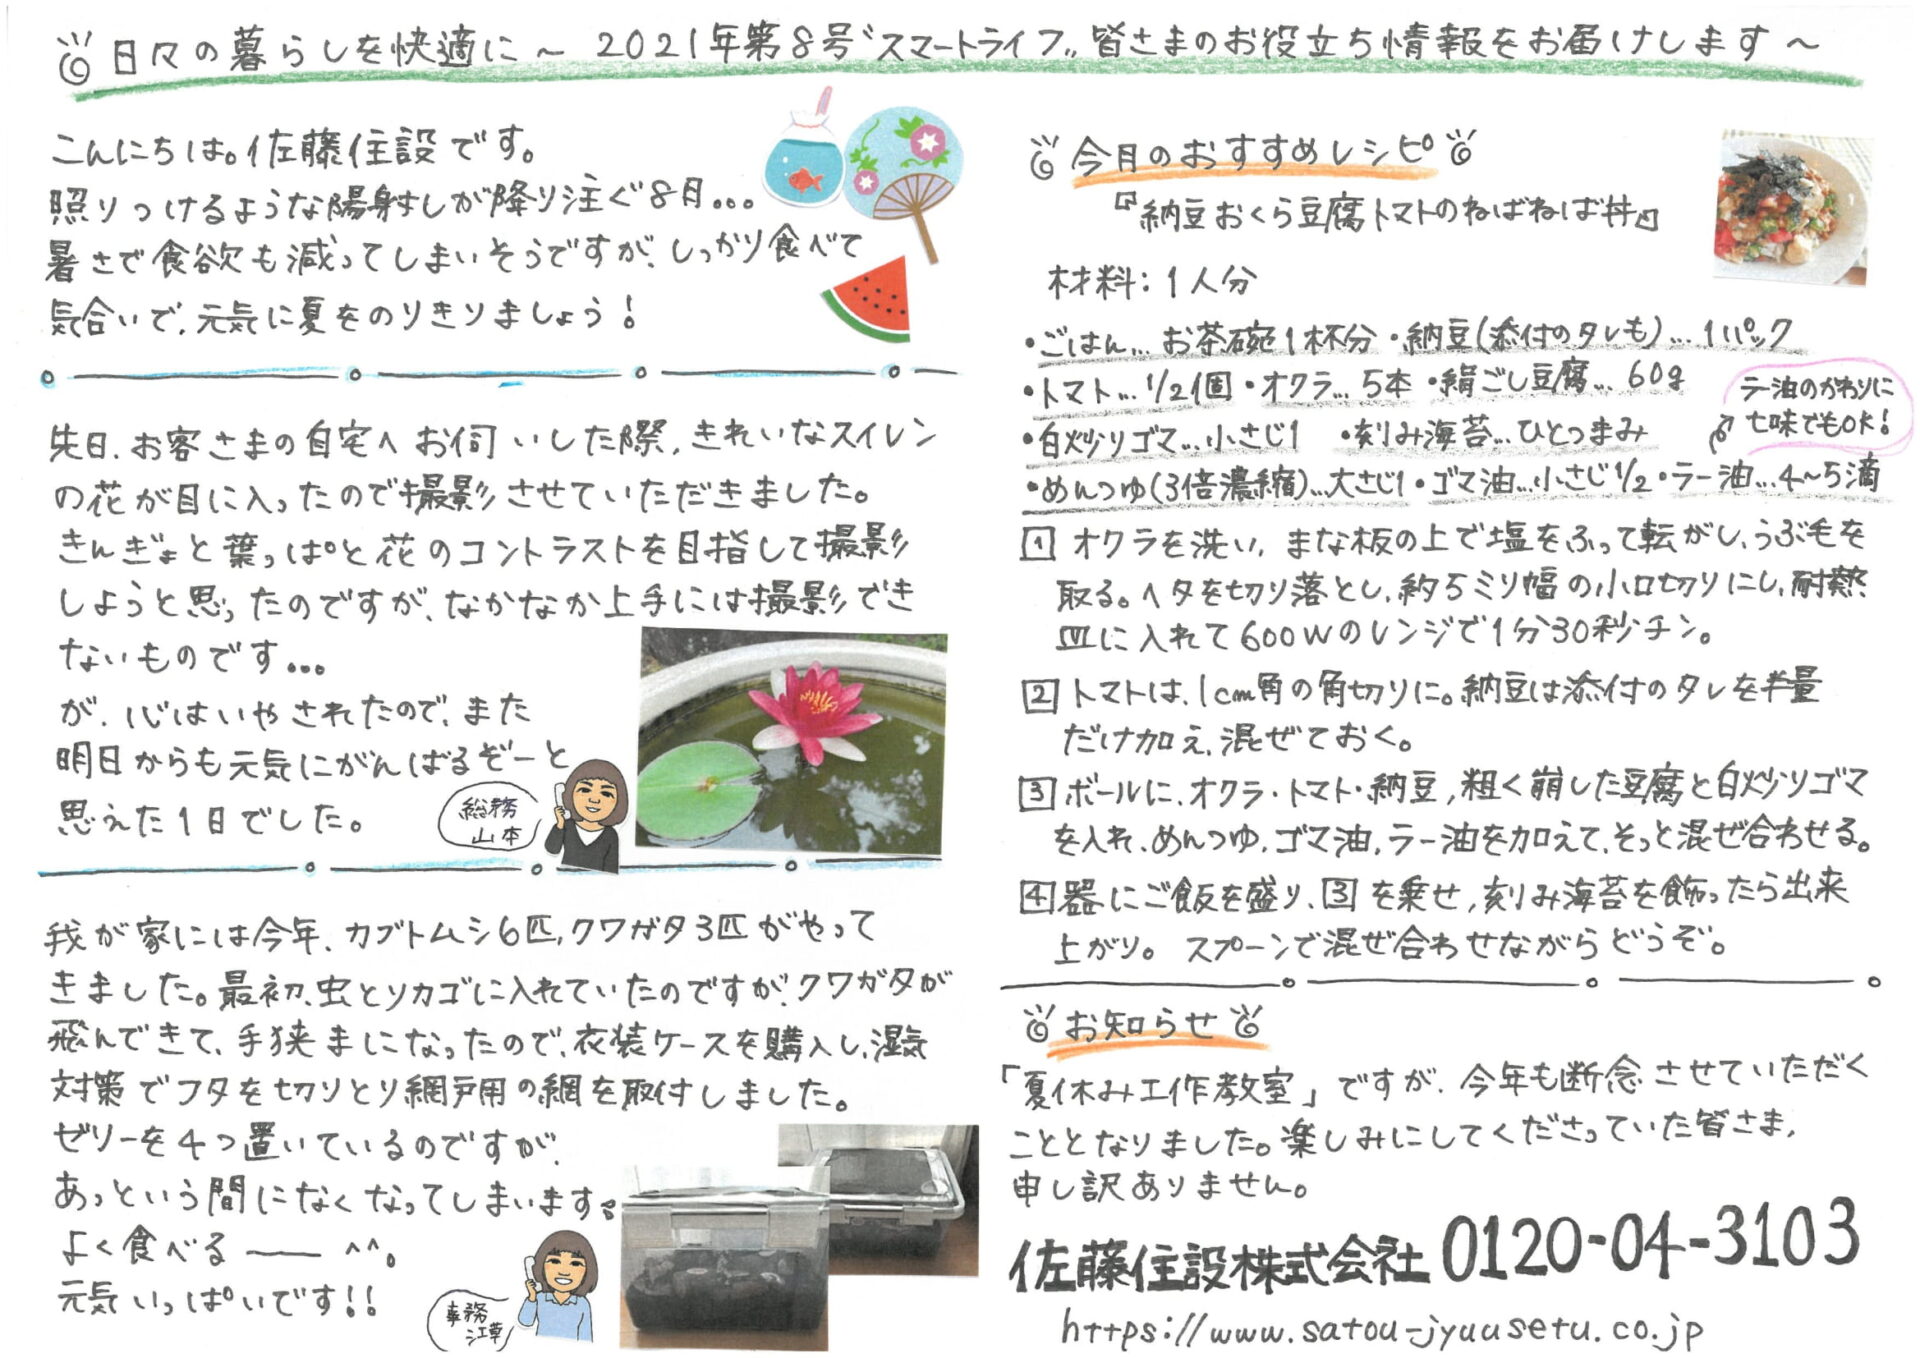 日々の暮らしを快適に～2021年第8号〝スマートライフ〟皆さまのお役立ち情報をお届けします～
こんにちは。佐藤住設です。
照りつけるような陽射しが降り注ぐ8月...
暑さで食欲も減ってしまいそうですが、しっかり食べて
気合いで、元気に夏をのりきりましょう!
先日、お客さまの自宅へお伺いした際、きれいなスイレン
の花が目に入ったので撮影させていただきました。
きんぎょと葉っぱと花のコントラストを目指して撮影
しようと思ったのですが、なかなか上手には撮影でき
ないものです...
が、心はいやされたので、また
明日からも元気にがんばるぞーと
思えた1日でした。
総務
山本
我が家には今年、カブトムシ6匹、クワガタ3匹がやって
きました。最初、虫とりカゴに入れていたのですが、クワガタが
飛んできて、手狭まになったので、衣装ケースを購入し、湿気
対策でフタを切りとり網戸用の網を取付しました。
ゼリーを4つ置いているのですが、
あっという間になくなってしまいます。
よく食べる――^^。
元気いっぱいです!!
事務
江草
今月のおすすめレシピ
『納豆おくら豆腐トマトのねばねば丼』
材料:1人分
・ごはん...お茶碗1杯分・納豆(添付のタレも)...1パック
・トマト...1/2個・オクラ...5本・絹ごし豆腐...60g
ラー油のかわりに
七味でもOK!
・白炒りゴマ...小さじ1 ・刻み海苔...ひとつまみ
・めんつゆ(3倍濃縮)...大さじ1・ゴマ油...小さじ1/2・ラー油...4～5滴
1 オクラを洗い、まな板の上で塩をふって転がし、うぶ毛を
取る。ヘタを切り落とし、約5ミリ幅の小口切りにし、耐熱
皿に入れて600Wのレンジで1分30秒チン。
2 トマトは、1cm角の角切りに。納豆は添付のタレを半量
だけ加え、混ぜておく。
3 ボールに、オクラ・トマト・納豆、粗く崩した豆腐と白炒りゴマ
を入れ、めんつゆ、ゴマ油、ラー油を加えて、そっと混ぜ合わせる。
4 器にご飯を盛り、3を乗せ、刻み海苔を飾ったら出来
上がり。スプーンで混ぜ合わせながらどうぞ。
お知らせ
「夏休み工作教室」ですが、今年も断念させていただく
こととなりました。楽しみにしてくださっていた皆さま、
申し訳ありません。
佐藤住設株式会社 0120-04-3103
https://www.satou-jyuusetu.co.jp